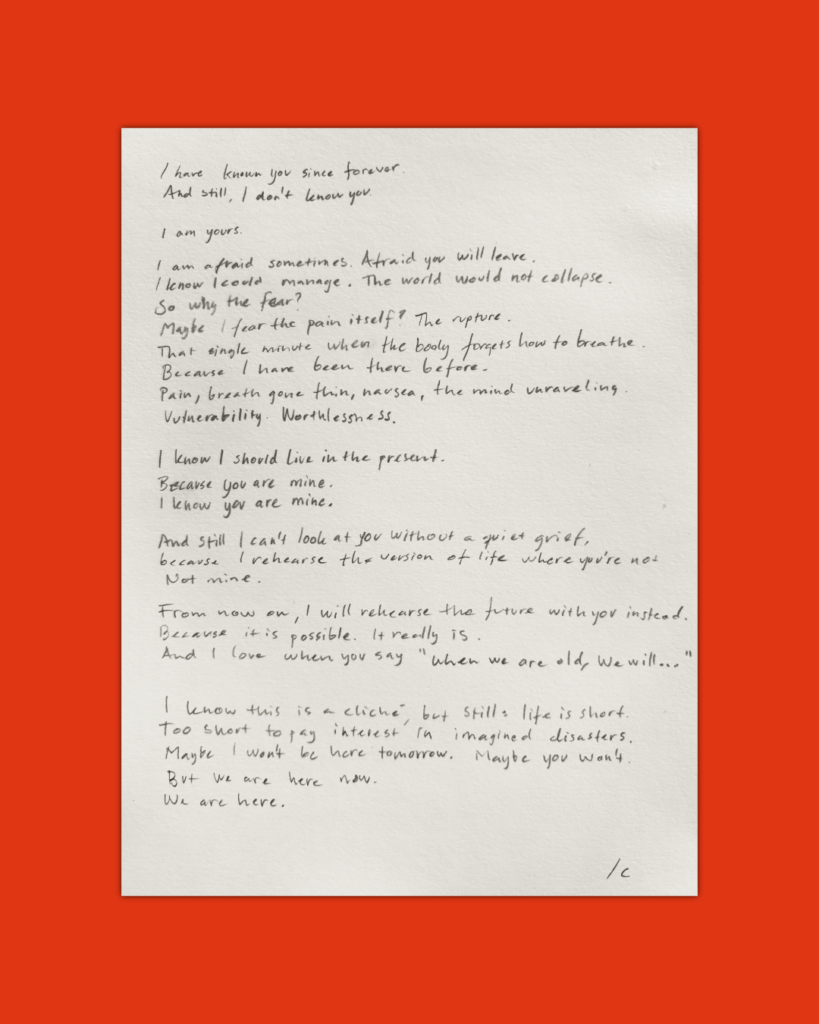 I have known you since forever.
And still, I don't know you.
I am yours.
I am afraid sometimes. Afraid you will leave.
I know I could manage. The world would not collapse.
So why the fear?
Maybe I fear the pain itself? The rupture.
That single minute when the body forgets how to breathe.
Because I have been there before.
Pain, breath gone thin, nausea, the mind unraveling.
Vulnerability. Worthlessness.
I know I should live in the present.
Because you are mine.
I know you are mine.
And still I can't look at you without a quiet grief,
because I rehearse the version of life where you're not
Not mine.
From now on, I will rehearse the future with you instead.
Because it is possible. It really is.
And I love when you say "when we are old, we will..."
I know this is a cliché, but still: life is short.
Too short to pay interest in imagined disasters.
Maybe I won't be here tomorrow. Maybe you won't.
But we are here now.
We are here.
/c